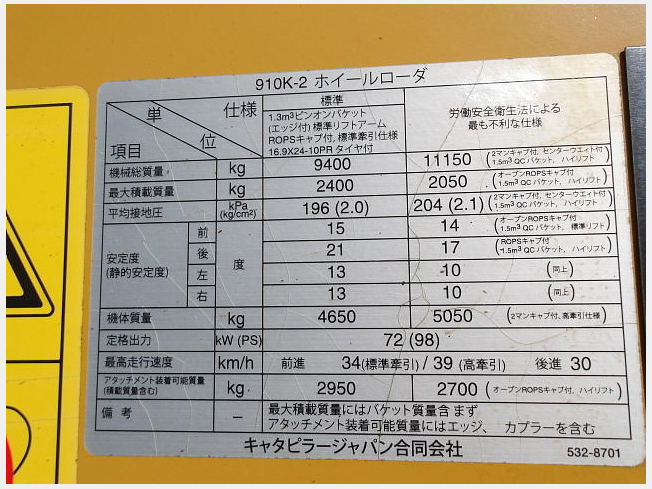 910K-2 ホイールローダ
単位 仕様 項目
標準
1.3m³ピンオンバケット
(エッジ付) 標準リフトアーム
ROPSキャブ付, 標準牽引仕様
16.9X24-10PR タイヤ付
労働安全衛生法による
最も不利な仕様
機械総質量 kg 9400 11150 (2マンキャブ付, センターウエイト付 1.5m³ QC バケット, ハイリフト)
最大積載質量 kg 2400 2050 (オープンROPSキャブ付 1.5m³ QC バケット, ハイリフト)
平均接地圧 kPa (kg/cm²) 196 (2.0) 204 (2.1) (2マンキャブ付, センターウエイト付 1.5m³ QC バケット, ハイリフト)
安定度 (静的安定度) 度
前 15 14 (オープンROPSキャブ付 1.5m³ QC バケット, 標準リフト)
後 21 17 (ROPSキャブ付 1.5m³ QC バケット, ハイリフト)
左 13 10 (同上)
右 13 10 (同上)
機体質量 kg 4650 5050 (2マンキャブ付, 高牽引仕様)
定格出力 kW (PS) 72 (98)
最高走行速度 km/h 前進 34(標準牽引) / 39 (高牽引) 後進 30
アタッチメント装着可能質量 (積載質量含む) kg 2950 2700 (オープンROPSキャブ付, ハイリフト)
備考 — 最大積載質量にはバケット質量含まず
アタッチメント装着可能質量にはエッジ、カプラーを含む
キャタピラージャパン合同会社
532-8701